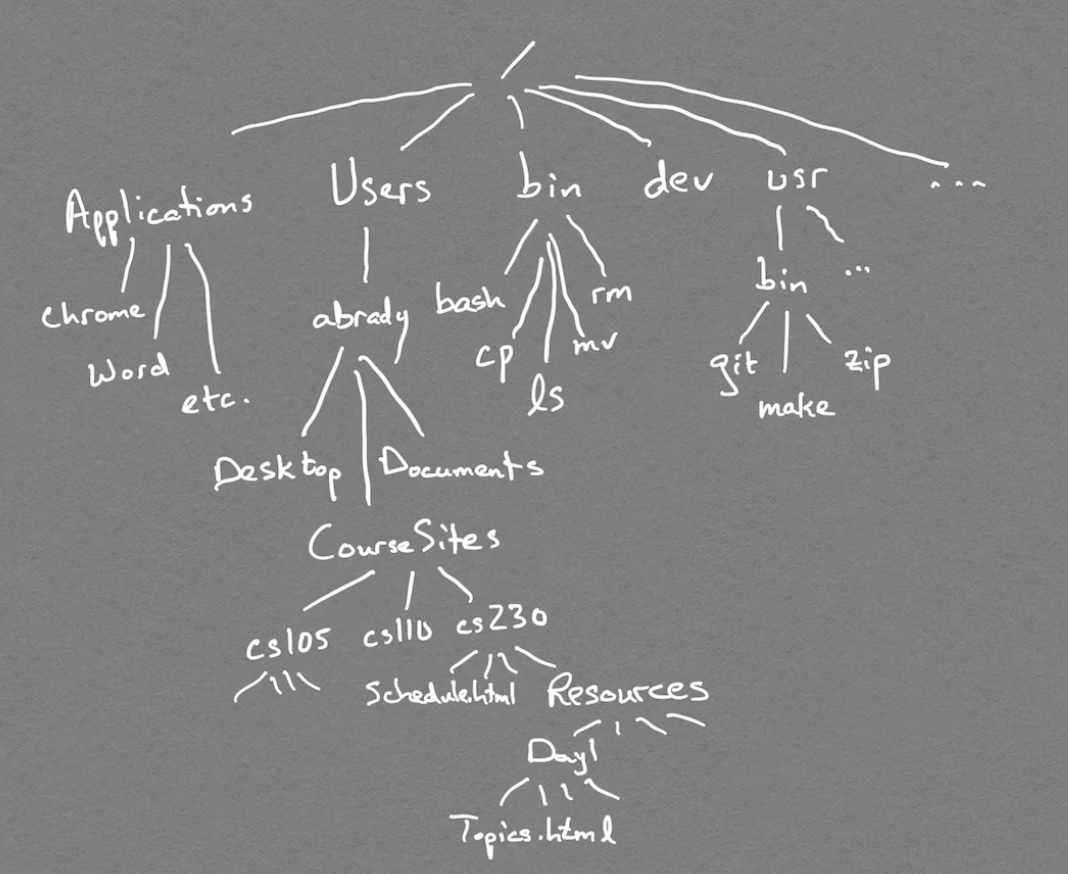 /
Applications Users bin dev usr ...
chrome abrady bash rm bin ...
Word cp mv git zip
etc. ls make
Desktop Documents
CourseSites
cs105 cs110 cs230
Schedule.html Resources
Day1
Topics.html